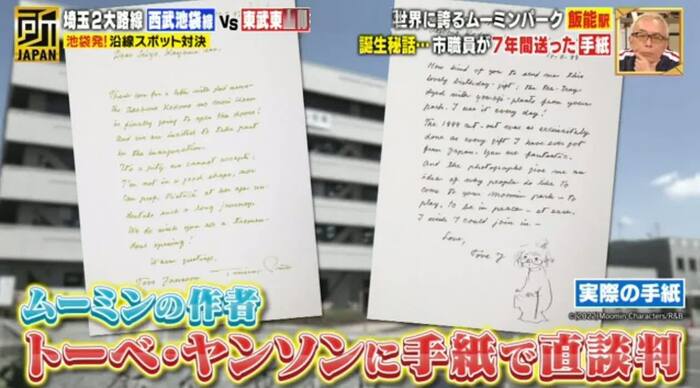 所
JAPAN
埼玉2大路線 西武池袋線 VS 東武東
池袋発!沿線スポット対決
世界に誇るムーミンパーク 飯能駅
誕生秘話…市職員が7年間送った手紙
Dear Seiyo, Kayama San,
Thank you for a letter with glad news –
is finally going to open the doors!
And we are invited to take part
in the inauguration.
It's a pity we cannot accept;
I'm not in a good shape, nor
can prop. Pietilä at our age un-
dertake such a long journey.
We do wish you a tremen-
dous opening!
Warm greetings,
Tove Jansson
How kind of you to send me this
lovely birthday-gift, the tea-tray
dyed with plants from your
park. I use it every day!
The 1999 cut-out was as
done as every gift I have ever got
from Japan. You are fantastic.
And the photographs give me an
idea of why people do like to
come to your Moomin park – to
play, to be in peace – at ease.
I wish I could join in –
Love,
Tove J
実際の手紙
©(2022)Moomin Characters/R&B
ムーミンの作者
トーベ・ヤンソンに手紙で直談判